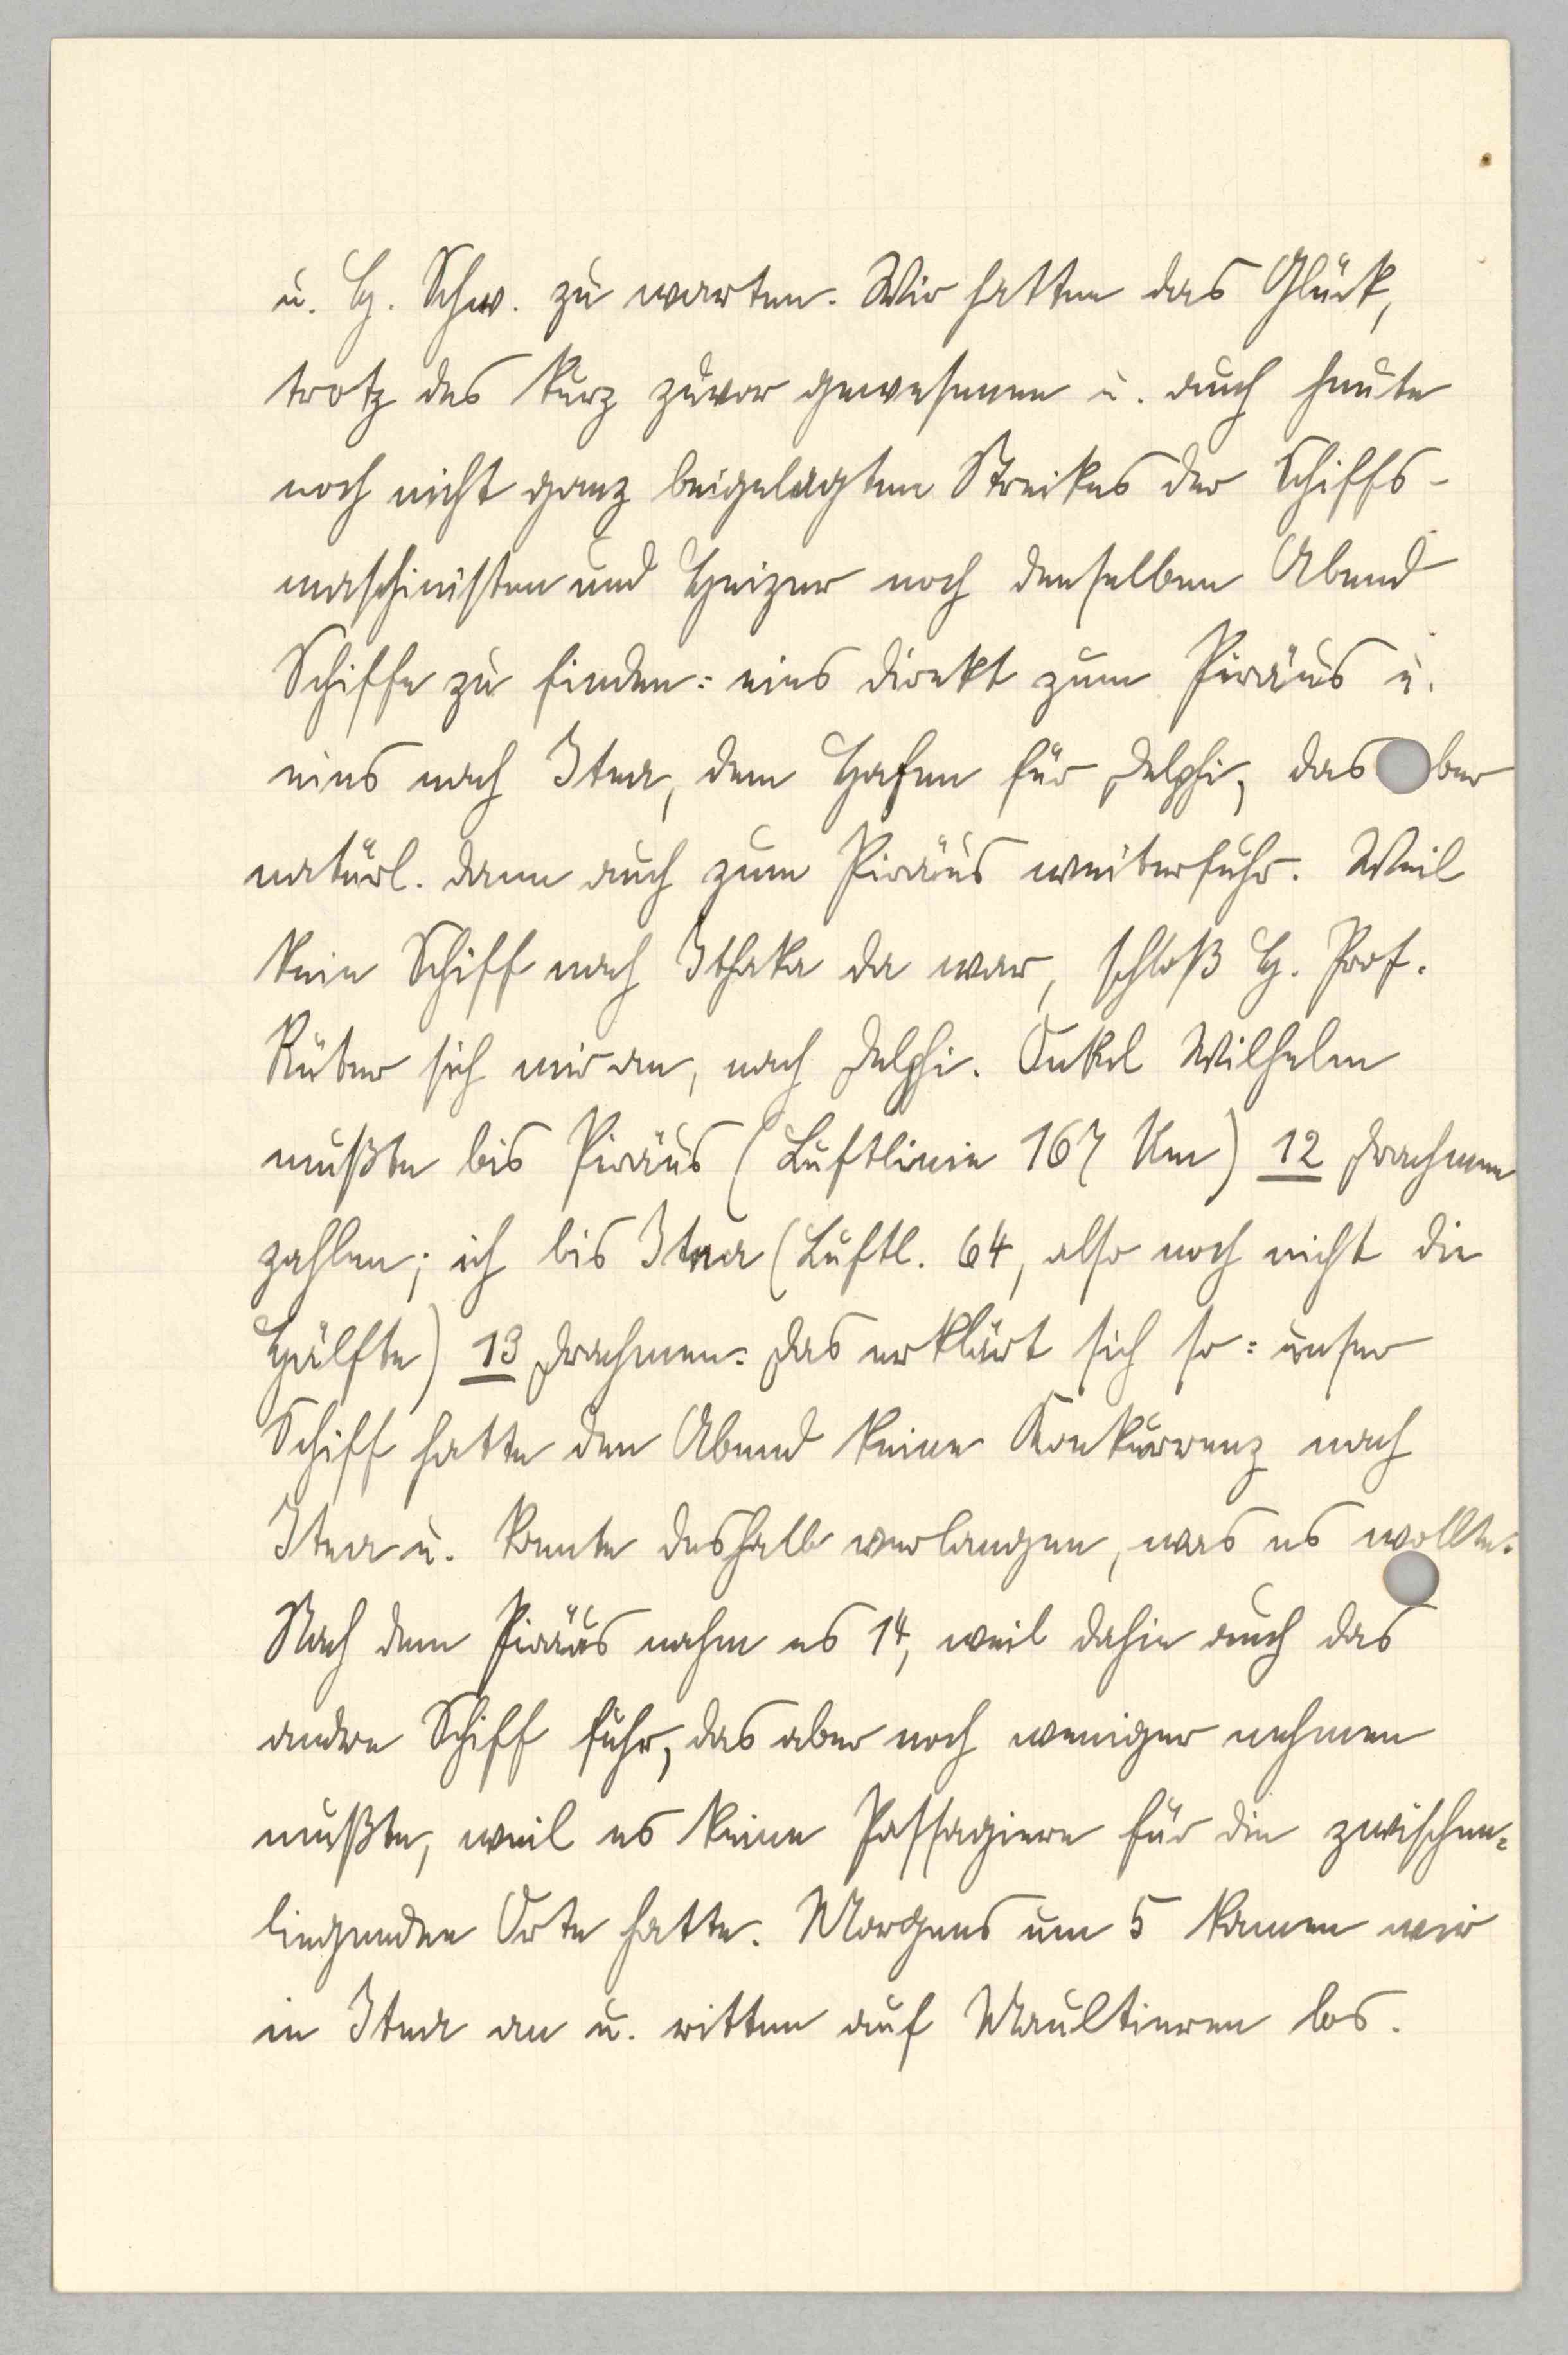 u. H. Schw. zu warten. Wir hatten das Glück,
trotz des kurz zuvor gewesenen u. auch heute
noch nicht ganz beigelegten Streikes der Schiffs-
maschinisten und Heizer noch denselben Abend
Schiffe zu finden: eins direkt zum Piräus u.
eins nach Itea, dem Hafen für Delphi, das ber
natürl. dann auch zum Piräus weiterfuhr. Weil
kein Schiff nach Ithaka da war, schloß H. Prof.
Rüter sich mir an, nach Delphi. Onkel Wilhelm
mußte bis Piräus (Luftlinie 167 Km) 12 Drachmen
zahlen; ich bis Itea (Luftl. 64, also noch nicht die
Hälfte) 13 Drachmen. Das erklärt sich so: unser
Schiff hatte den Abend keine Konkurrenz nach
Itea u. konnte deshalb verlangen, was es wollte.
Nach dem Piräus nahm es 14, weil dahin auch das
andre Schiff fuhr, das aber noch weniger nehmen
mußte, weil es keine Passagiere für die zwischen-
liegenden Orte hatte. Morgens um 5 kamen wir
in Itea an u. ritten auf Maultieren los.